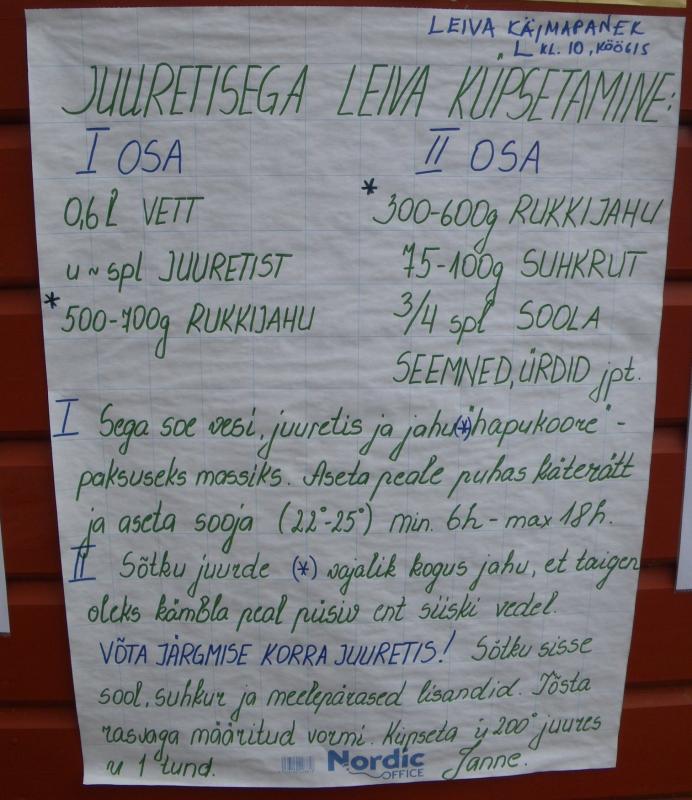 LEIVA KÄIMAPANEK
L KL. 10, KÖÖGIS
JUURETISEGA LEIVA KÜPSETAMINE:
I OSA
0,6 l VETT
u ~ spl JUURETIST
* 500-700g RUKKIJAHU
II OSA
* 300-600g RUKKIJAHU
75-100g SUHKRUT
3/4 spl SOOLA
SEEMNED, ÜRDID jpt.
I Sega soe vesi, juuretis ja jahu (*) "hapukoore"-
paksuseks massiks. Aseta peale puhas käterätt
ja aseta sooja (22°-25°) min. 6h - max 18h.
II Sõtku juurde (*) vajalik kogus jahu, et taigen
oleks kämbla peal püsiv ent siiski vedel.
VÕTA JÄRGMISE KORRA JUURETIS! Sõtku sisse
sool, suhkur ja meelepärased lisandid. Tõsta
rasvaga määritud vormi. Küpseta ü 200° juures
u 1 tund. Janne.
Nordic
OFFICE